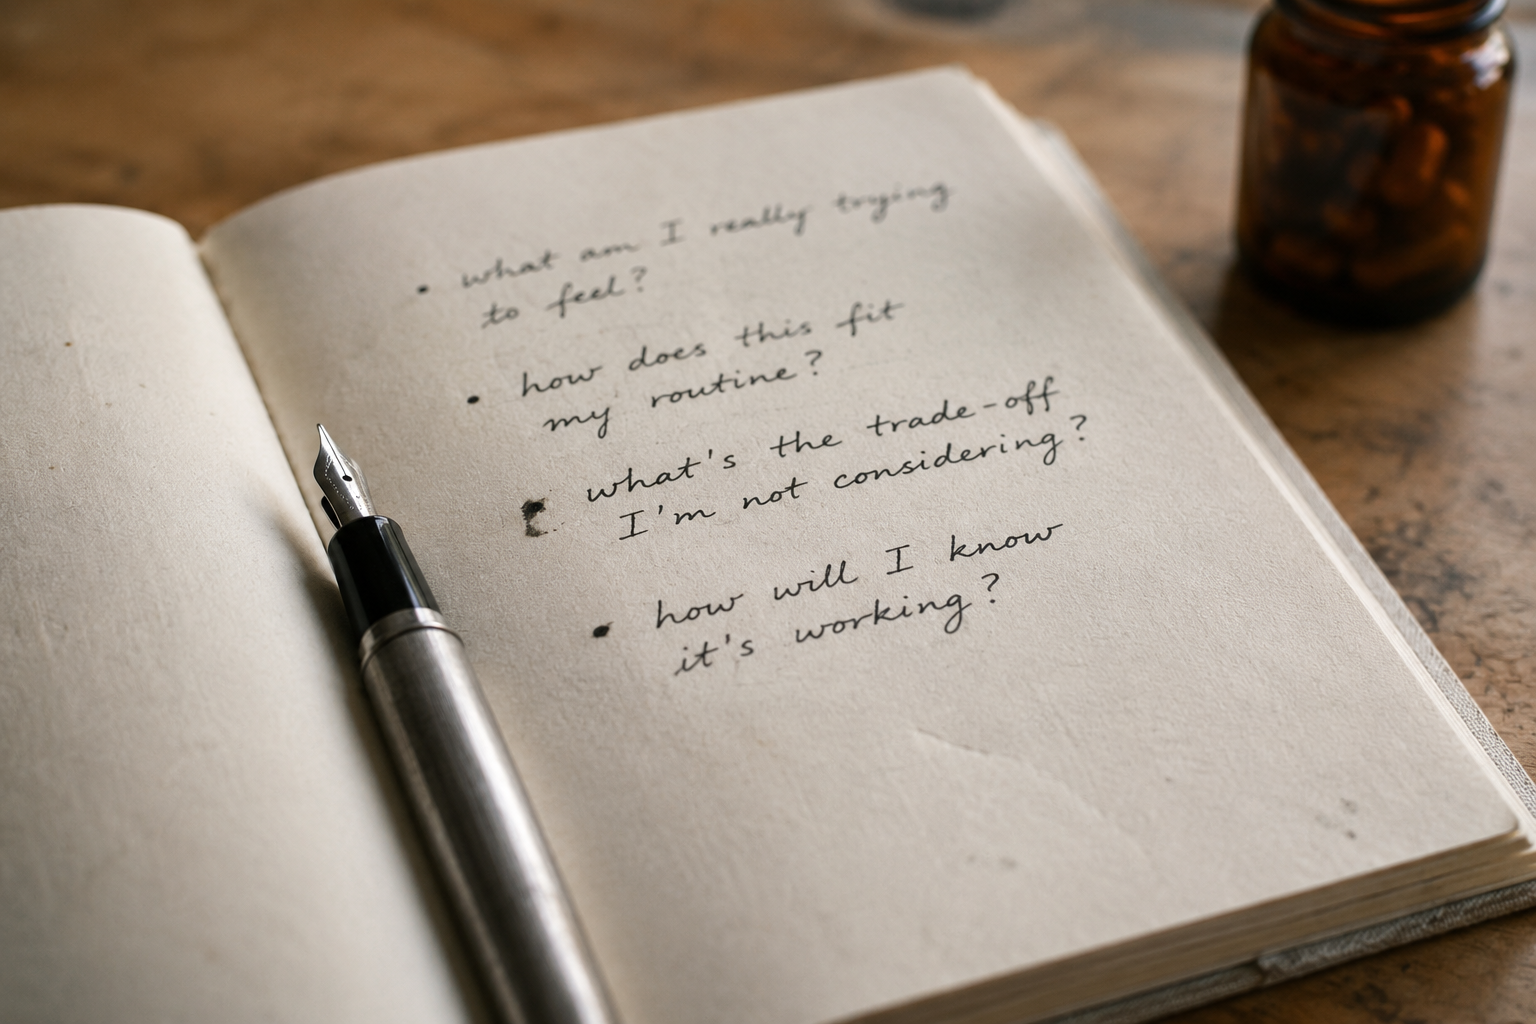 • what am I really trying
to feel?
• how does this fit
my routine?
• what's the trade-off
I'm not considering?
• how will I know
it's working?